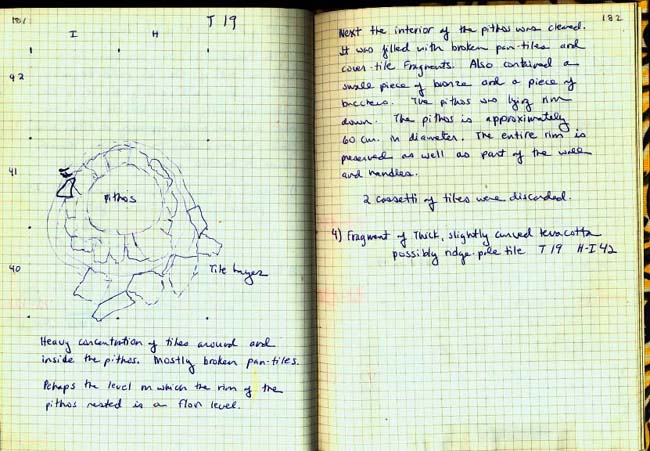 181
T 19
I H
42
41
Pithos
40
Tile layer
Heavy concentration of tiles around and
inside the pithos. Mostly broken pan-tiles.
Pehaps the level on which the rim of the
pithos rested is a floor level.
182
Next the interior of the pithos was cleared.
It was filled with broken pan-tiles and
cover-tile fragments. Also contained a
small piece of bronze and a piece of
bucchero. The pithos was lying rim
down. The pithos is approximately
60 cm. in diameter. The entire rim is
preserved as well as part of the wall
and handles.
2 cassetti of tiles were discarded.
4) Fragment of thick, slightly curved terracotta
possibly ridge-pole tile T 19 H-I 42